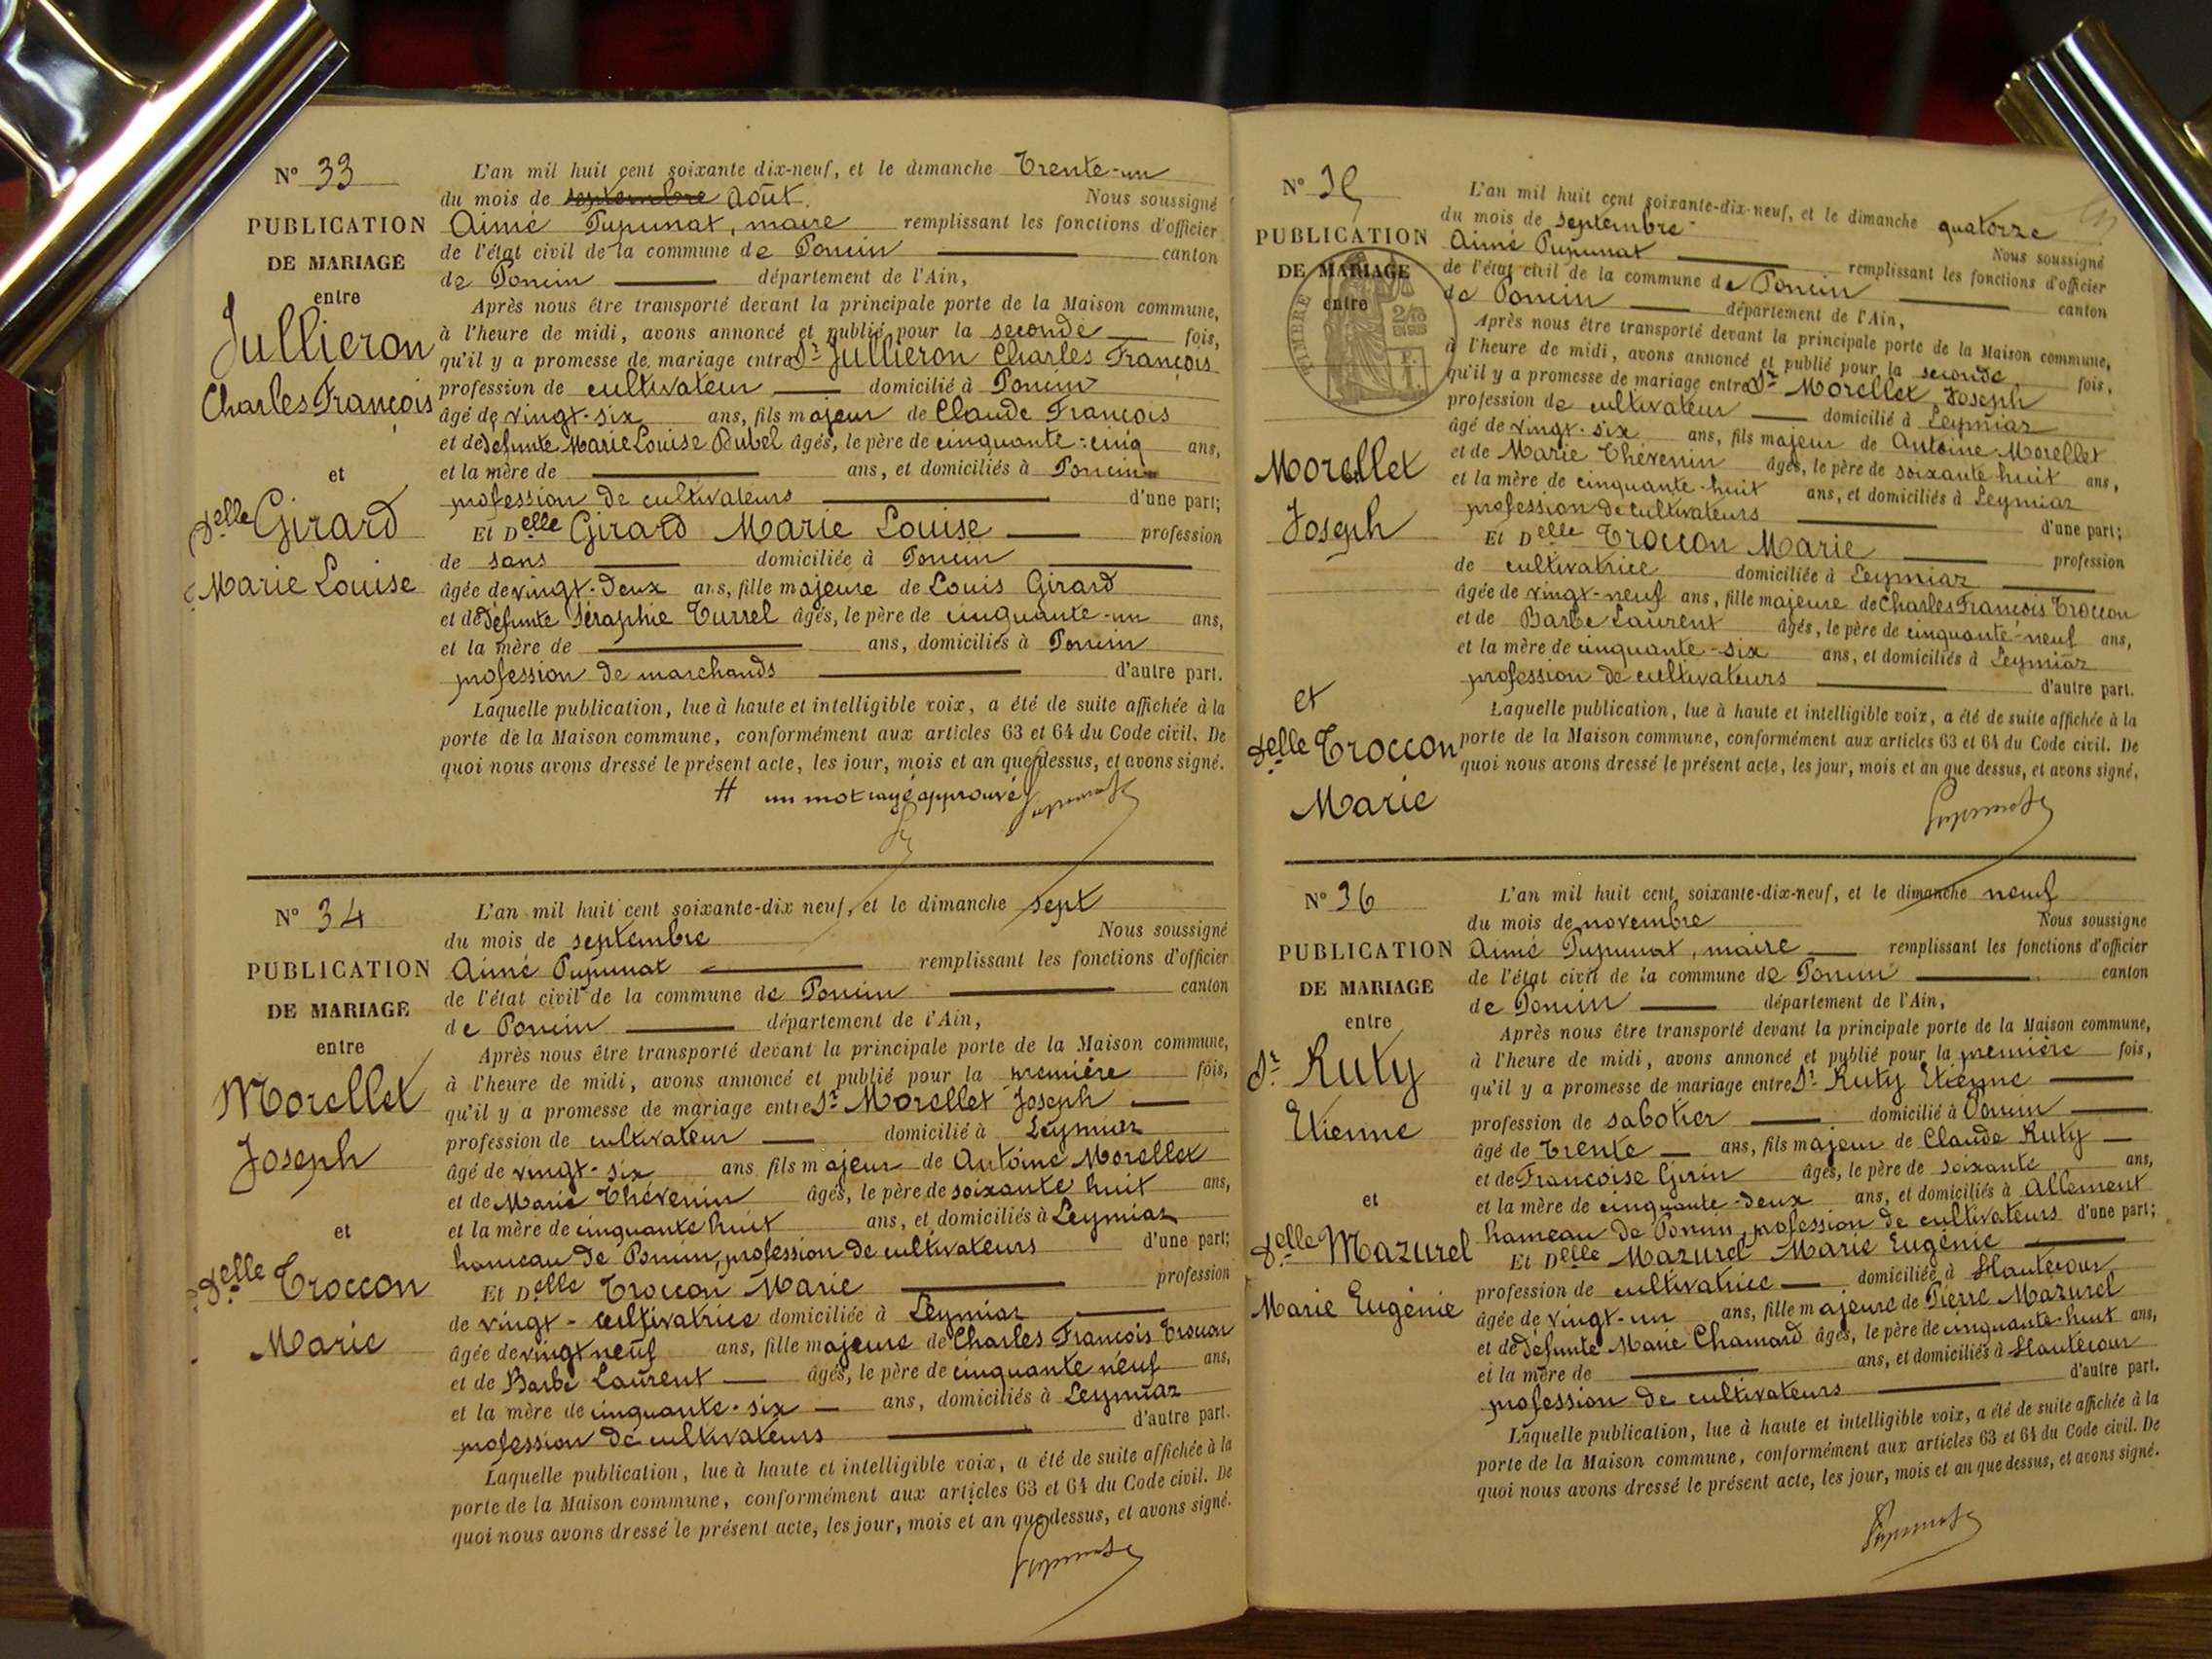 N° 33
PUBLICATION
DE MARIAGE
entre
Jullieron
Charles François
et
delle Girard
Marie Louise
L'an mil huit cent soixante dix-neuf, et le dimanche Trente-un
du mois de septembre août. Nous soussigné
Aimé Pupunat, maire remplissant les fonctions d'officier
de l'état civil de la commune de Poncin canton
de Poncin département de l'Ain,
Après nous être transporté devant la principale porte de la Maison commune,
à l'heure de midi, avons annoncé et publié pour la seconde fois,
qu'il y a promesse de mariage entre Sr Jullieron Charles François
profession de cultivateur domicilié à Poncin
âgé de vingt-six ans, fils majeur de Claude François
et de défunte Marie Louise Dubel âgés, le père de cinquante-cinq ans,
et la mère de ans, et domiciliés à Poncin
profession de cultivateurs d'une part;
Et Delle Girard Marie Louise profession
de sans domiciliée à Poncin
âgée de vingt-deux ans, fille majeure de Louis Girard
et de défunte Séraphie Turrel âgés, le père de cinquante-un ans,
et la mère de ans, domiciliés à Poncin
profession de marchands d'autre part.
Laquelle publication, lue à haute et intelligible voix, a été de suite affichée à la
porte de la Maison commune, conformément aux articles 63 et 64 du Code civil. De
quoi nous avons dressé le présent acte, les jour, mois et an que dessus, et avons signé.
# un mot rayé approuvé Pupunat
N° 34
PUBLICATION
DE MARIAGE
entre
Morellet
Joseph
et
delle Troccon
Marie
L'an mil huit cent soixante-dix neuf, et le dimanche sept
du mois de septembre Nous soussigné
Aimé Pupunat remplissant les fonctions d'officier
de l'état civil de la commune de Poncin canton
de Poncin département de l'Ain,
Après nous être transporté devant la principale porte de la Maison commune,
à l'heure de midi, avons annoncé et publié pour la première fois,
qu'il y a promesse de mariage entre Sr Morellet Joseph
profession de cultivateur domicilié à Leymiaz
âgé de vingt-six ans fils majeur de Antoine Morellet
et de Marie Thévenin âgés, le père de soixante huit ans,
et la mère de cinquante huit ans, et domiciliés à Leymiaz
hameau de Poncin, profession de cultivateurs d'une part;
Et Delle Troccon Marie profession
de vingt - cultivatrice domiciliée à Leymiaz
âgée de vingt neuf ans, fille majeure de Charles François Troccon
et de Barbe Laurent âgés, le père de cinquante neuf ans,
et la mère de cinquante-six ans, domiciliés à Leymiaz
profession de cultivateurs d'autre part.
Laquelle publication, lue à haute et intelligible voix, a été de suite affichée à la
porte de la Maison commune, conformément aux articles 63 et 64 du Code civil. De
quoi nous avons dressé le présent acte, les jour, mois et an que dessus, et avons signé.
Pupunat
N° 35
PUBLICATION
DE MARIAGE
entre
TIMBRE
Morellet
Joseph
et
delle Troccon
Marie
L'an mil huit cent soixante-dix-neuf, et le dimanche quatorze
du mois de septembre Nous soussigné
Aimé Pupunat remplissant les fonctions d'officier
de l'état civil de la commune de Poncin canton
de Poncin département de l'Ain,
Après nous être transporté devant la principale porte de la Maison commune,
à l'heure de midi, avons annoncé et publié pour la seconde fois,
qu'il y a promesse de mariage entre Sr Morellet Joseph
profession de cultivateur domicilié à Leymiaz
âgé de vingt-six ans, fils majeur de Antoine Morellet
et de Marie Thévenin âgés, le père de soixante huit ans,
et la mère de cinquante-huit ans, et domiciliés à Leymiaz
profession de cultivateurs d'une part;
Et Delle Troccon Marie profession
de cultivatrice domiciliée à Leymiaz
âgée de vingt-neuf ans, fille majeure de Charles François Troccon
et de Barbe Laurent âgés, le père de cinquante-neuf ans,
et la mère de cinquante-six ans, et domiciliés à Leymiaz
profession de cultivateurs d'autre part.
Laquelle publication, lue à haute et intelligible voix, a été de suite affichée à la
porte de la Maison commune, conformément aux articles 63 et 64 du Code civil. De
quoi nous avons dressé le présent acte, les jour, mois et an que dessus, et avons signé.
Pupunat
N° 36
PUBLICATION
DE MARIAGE
entre
Sr Ruty
Etienne
et
delle Mazurel
Marie Eugénie
L'an mil huit cent soixante-dix-neuf, et le dimanche neuf
du mois de novembre Nous soussigné
Aimé Pupunat, maire remplissant les fonctions d'officier
de l'état civil de la commune de Poncin canton
de Poncin département de l'Ain,
Après nous être transporté devant la principale porte de la Maison commune,
à l'heure de midi, avons annoncé et publié pour la première fois,
qu'il y a promesse de mariage entre Sr Ruty Etienne
profession de sabotier domicilié à Poncin
âgé de trente ans, fils majeur de Claude Ruty
et de Françoise Girin âgés, le père de soixante ans,
et la mère de cinquante-deux ans, et domiciliés à Allement
hameau de Poncin, profession de cultivateurs d'une part;
Et Delle Mazurel Marie Eugénie
profession de cultivatrice domiciliée à Hautecour
âgée de vingt-un ans, fille majeure de Pierre Mazurel
et de défunte Marie Chamard âgés, le père de cinquante-huit ans,
et la mère de ans, et domiciliés à Hautecour
profession de cultivateurs d'autre part.
Laquelle publication, lue à haute et intelligible voix, a été de suite affichée à la
porte de la Maison commune, conformément aux articles 63 et 64 du Code civil. De
quoi nous avons dressé le présent acte, les jour, mois et an que dessus, et avons signé.
Pupunat